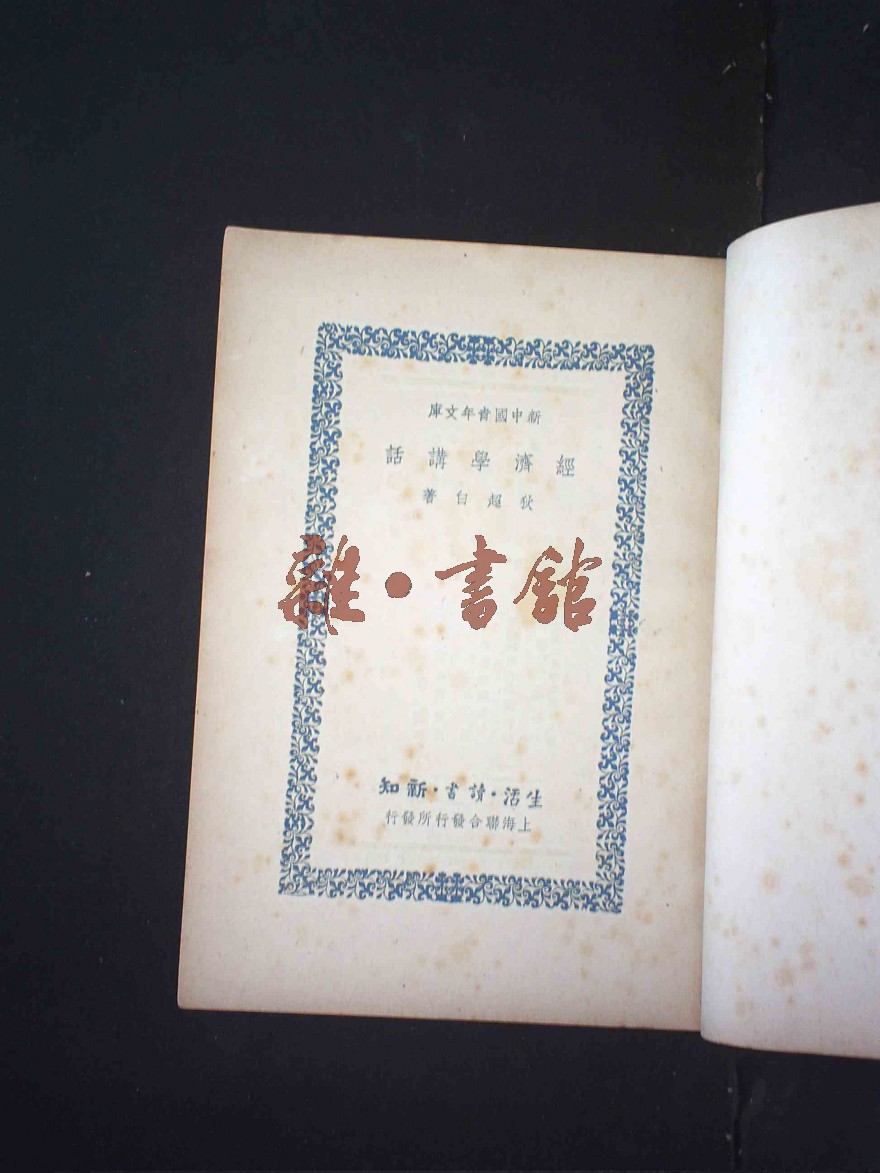 新中國青年文庫
經濟學講話
狄超白著
雜·書館
生活·讀書·新知
上海聯合發行所發行